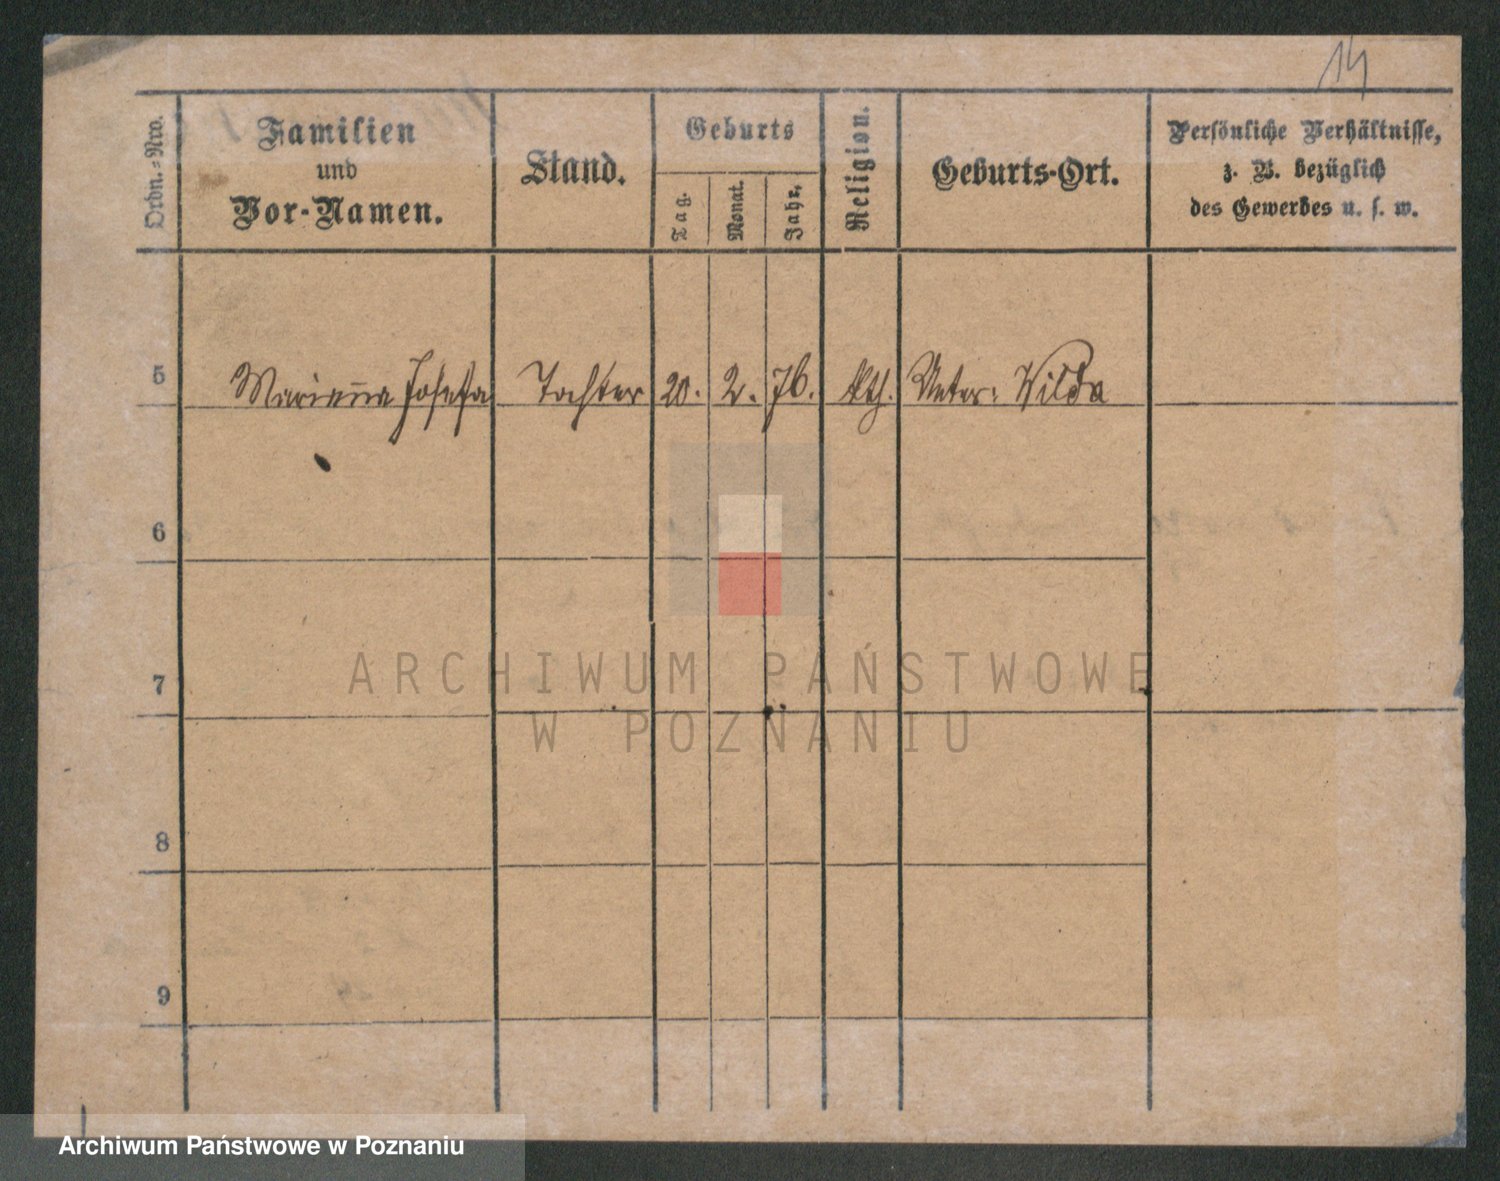 14
Ordn.-Nro.
Familien
und
Vor-Namen.
Stand.
Geburts
Tag.
Monat.
Jahr.
Religion.
Geburts-Ort.
Persönliche Verhältnisse,
z. B. bezüglich
des Gewerbes u. s. w.
5 Marian̄a Josefa Tochter 20. 2. 76. kth. Unter: Wilda
6
7
8
9
ARCHIWUM PAŃSTWOWE
W POZNANIU
Archiwum Państwowe w Poznaniu